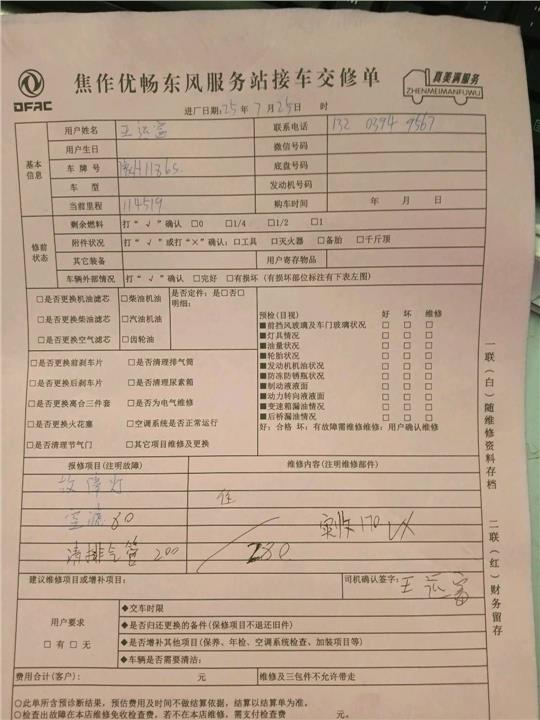 DFAC
焦作优畅东风服务站接车交修单
真美满服务
ZHENMEIMANFUWU
进厂日期:25年7月25日 时
基本信息
用户姓名 联系电话 132 0394 9567
用户生日 微信号码
车牌号 底盘号码
车型 发动机号码
当前里程 114519 购车时间 年 月 日
修前状态
剩余燃料 打“√”确认 □0 □1/4 □1/2 □1
附件状况 打“√”或打“×”确认:□工具 □灭火器 □备胎 □千斤顶
其它装备 用户寄存物品
车辆外部情况 打“√”确认 □完好 □有损坏 (有损坏部位标注有下表左图)
□是否更换机油滤芯 □柴油机油 是否定件:是□否□
明细:
□是否更换柴油滤芯 □汽油机油
□是否更换空气滤芯 □齿轮油
□是否更换前刹车片 □是否清理排气筒
□是否更换后刹车片 □是否清理尿素箱
□是否更换离合三件套 □是否为电气维修
□是否更换火花塞 □空调系统是否正常运行
□是否清理节气门 □其它项目维修及更换
预检(目视) 好 坏 维修
■前挡风玻璃及车门玻璃状况 □ □ □
■灯具情况 □ □ □
■油量状况 □ □ □
■轮胎状况 □ □ □
■发动机机油状况 □ □ □
■防冻防锈瓶状况 □ □ □
■制动液液面 □ □ □
■动力转向液液面 □ □ □
■变速箱漏油情况 □ □ □
■后桥漏油情况 □ □ □
好:合格 坏:有故障需维修维修:用户确认维修
报修项目(注明故障) 维修内容(注明维修部件)
故障灯
空滤 80 实收170
清排气管 200 280
建议维修项目或增补项目: 司机确认签字:
用户要求
□有□无
◆交车时限
◆是否归还更换的备件(保修项目不退还旧件)
◆是否增补其他项目(保养、年检、空调系统检查、加装项目等)
◆车辆是否需要清洁:
费用合计(客户): 元 维修及三包件不允许带走
○此单所含预诊断结果,预估费用及时间不做结算依据,结算以结算单为准。
○检查出故障在本店维修免收检查费,若不在本店维修,需支付检查费 元。
一联(白)随维修资料存档
二联(红)财务留存